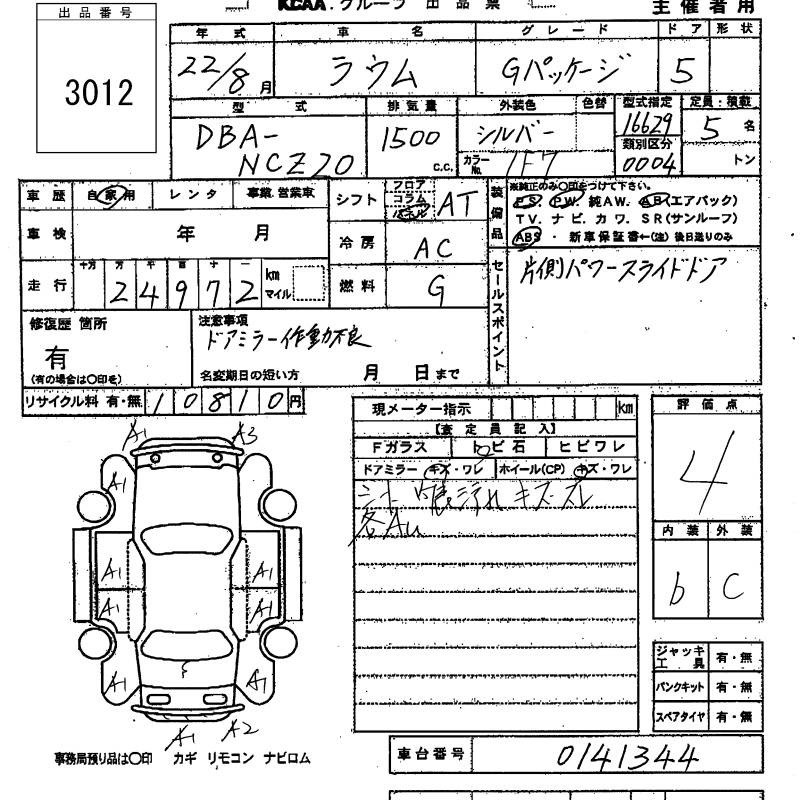 KCAA.グループ 出品票
主催者用
出品番号
3012
年式 車名 グレード ドア 形状
22/8月 ラウム Gパッケージ 5
型式 排気量 外装色 色替 型式指定 定員・積載
DBA-NCZ20 1500 c.c. シルバー 16629 5名
カラーNo. 1F7 類別区分 0004 トン
車歴 自家用 レンタ 事業.営業車
シフト フロア コラム パネル AT
装備品
※純正のみ〇印をつけて下さい。
P.S. P.W. 純A.W. A.B(エアバック)
T.V. ナビ. カワ. S.R(サンルーフ)
ABS ・ 新車保証書←(注) 後日送りのみ
車検 年 月
冷房 AC
走行 十万 万 千 百 十 一
24972 km マイル
燃料 G
セールスポイント
片側パワースライドドア
修復歴 箇所
有
(有の場合は〇印を)
注意事項
ドアミラー作動不良
名変期日の短い方 月 日まで
リサイクル料 有・無 10810円
現メーター指示 km
【査定員記入】
Fガラス トビ石 ヒビワレ
ドアミラー キズ・ワレ ホイール(CP) キズ・ワレ
シート 内張汚れ キズ スレ
各AU
評価点
4
内装 外装
b C
ジャッキ工具 有・無
パンクキット 有・無
スペアタイヤ 有・無
A1 A3
A1
A1 A1
A1 A1
F
A1 A1
A1 A2
事務局預り品は〇印 カギ リモコン ナビロム
車台番号 0141344